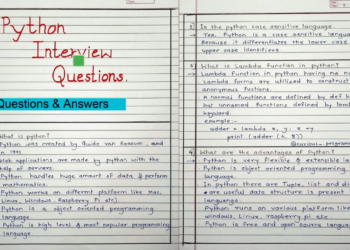 Python
Interview
Questions.
Questions & Answers
What is python?
Python was created by Guido van Rossum, and
in 1991.
Web applications are made by python with the
help of servers.
Python handles huge amount of data & perform
mathematics.
Python works on different platform like Mac,
Linux, Windows, Raspberry Pi etc).
Python is a object oriented programming
language
Python is high level & most popular programming
language
Is the python case sensitive language.
→ Yes. Python is a case sensitive language.
Because it differentiates the lower case
upper case identifiers.
What is Lambda function in python?
→ Lambda function in python having no
Lambda forms are utilized to construct
anonymous fections.
A normal functions are defined by def
but unnamed functions defined by lambda
keyword.
example:-
adder = lambda x, y, x +y
print (adder (1, 2))
4 What are the advantages of Python?
→ Python is very flexible & extensible
Python is object oriented programming
language.
In python there are Tuple, list and
are useful data structure is present
languange.
Python runs on various platform like
windows, Linux, raspberry pi etc
Python is free and open source language.